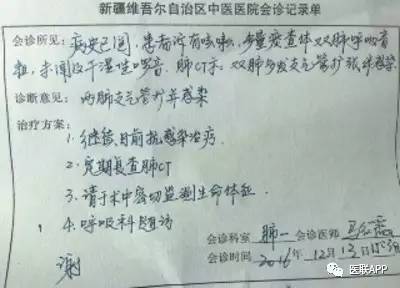 新疆维吾尔自治区中医医院会诊记录单
会诊所见:病史已阅,患者诉有咳嗽,少量痰查体双肺呼吸音
粗,未闻及干湿性啰音.肺CT示:双肺多发支气管扩张伴感染
诊断意见:两肺支气管扩张并感染
治疗方案:
1.继续目前抗感染治疗.
2.定期复查肺CT
3.请于术中密切监测生命体征.
4.呼吸科随访
谢
会诊科室 肺一 会诊医师
会诊时间 2016年 12月
医联APP